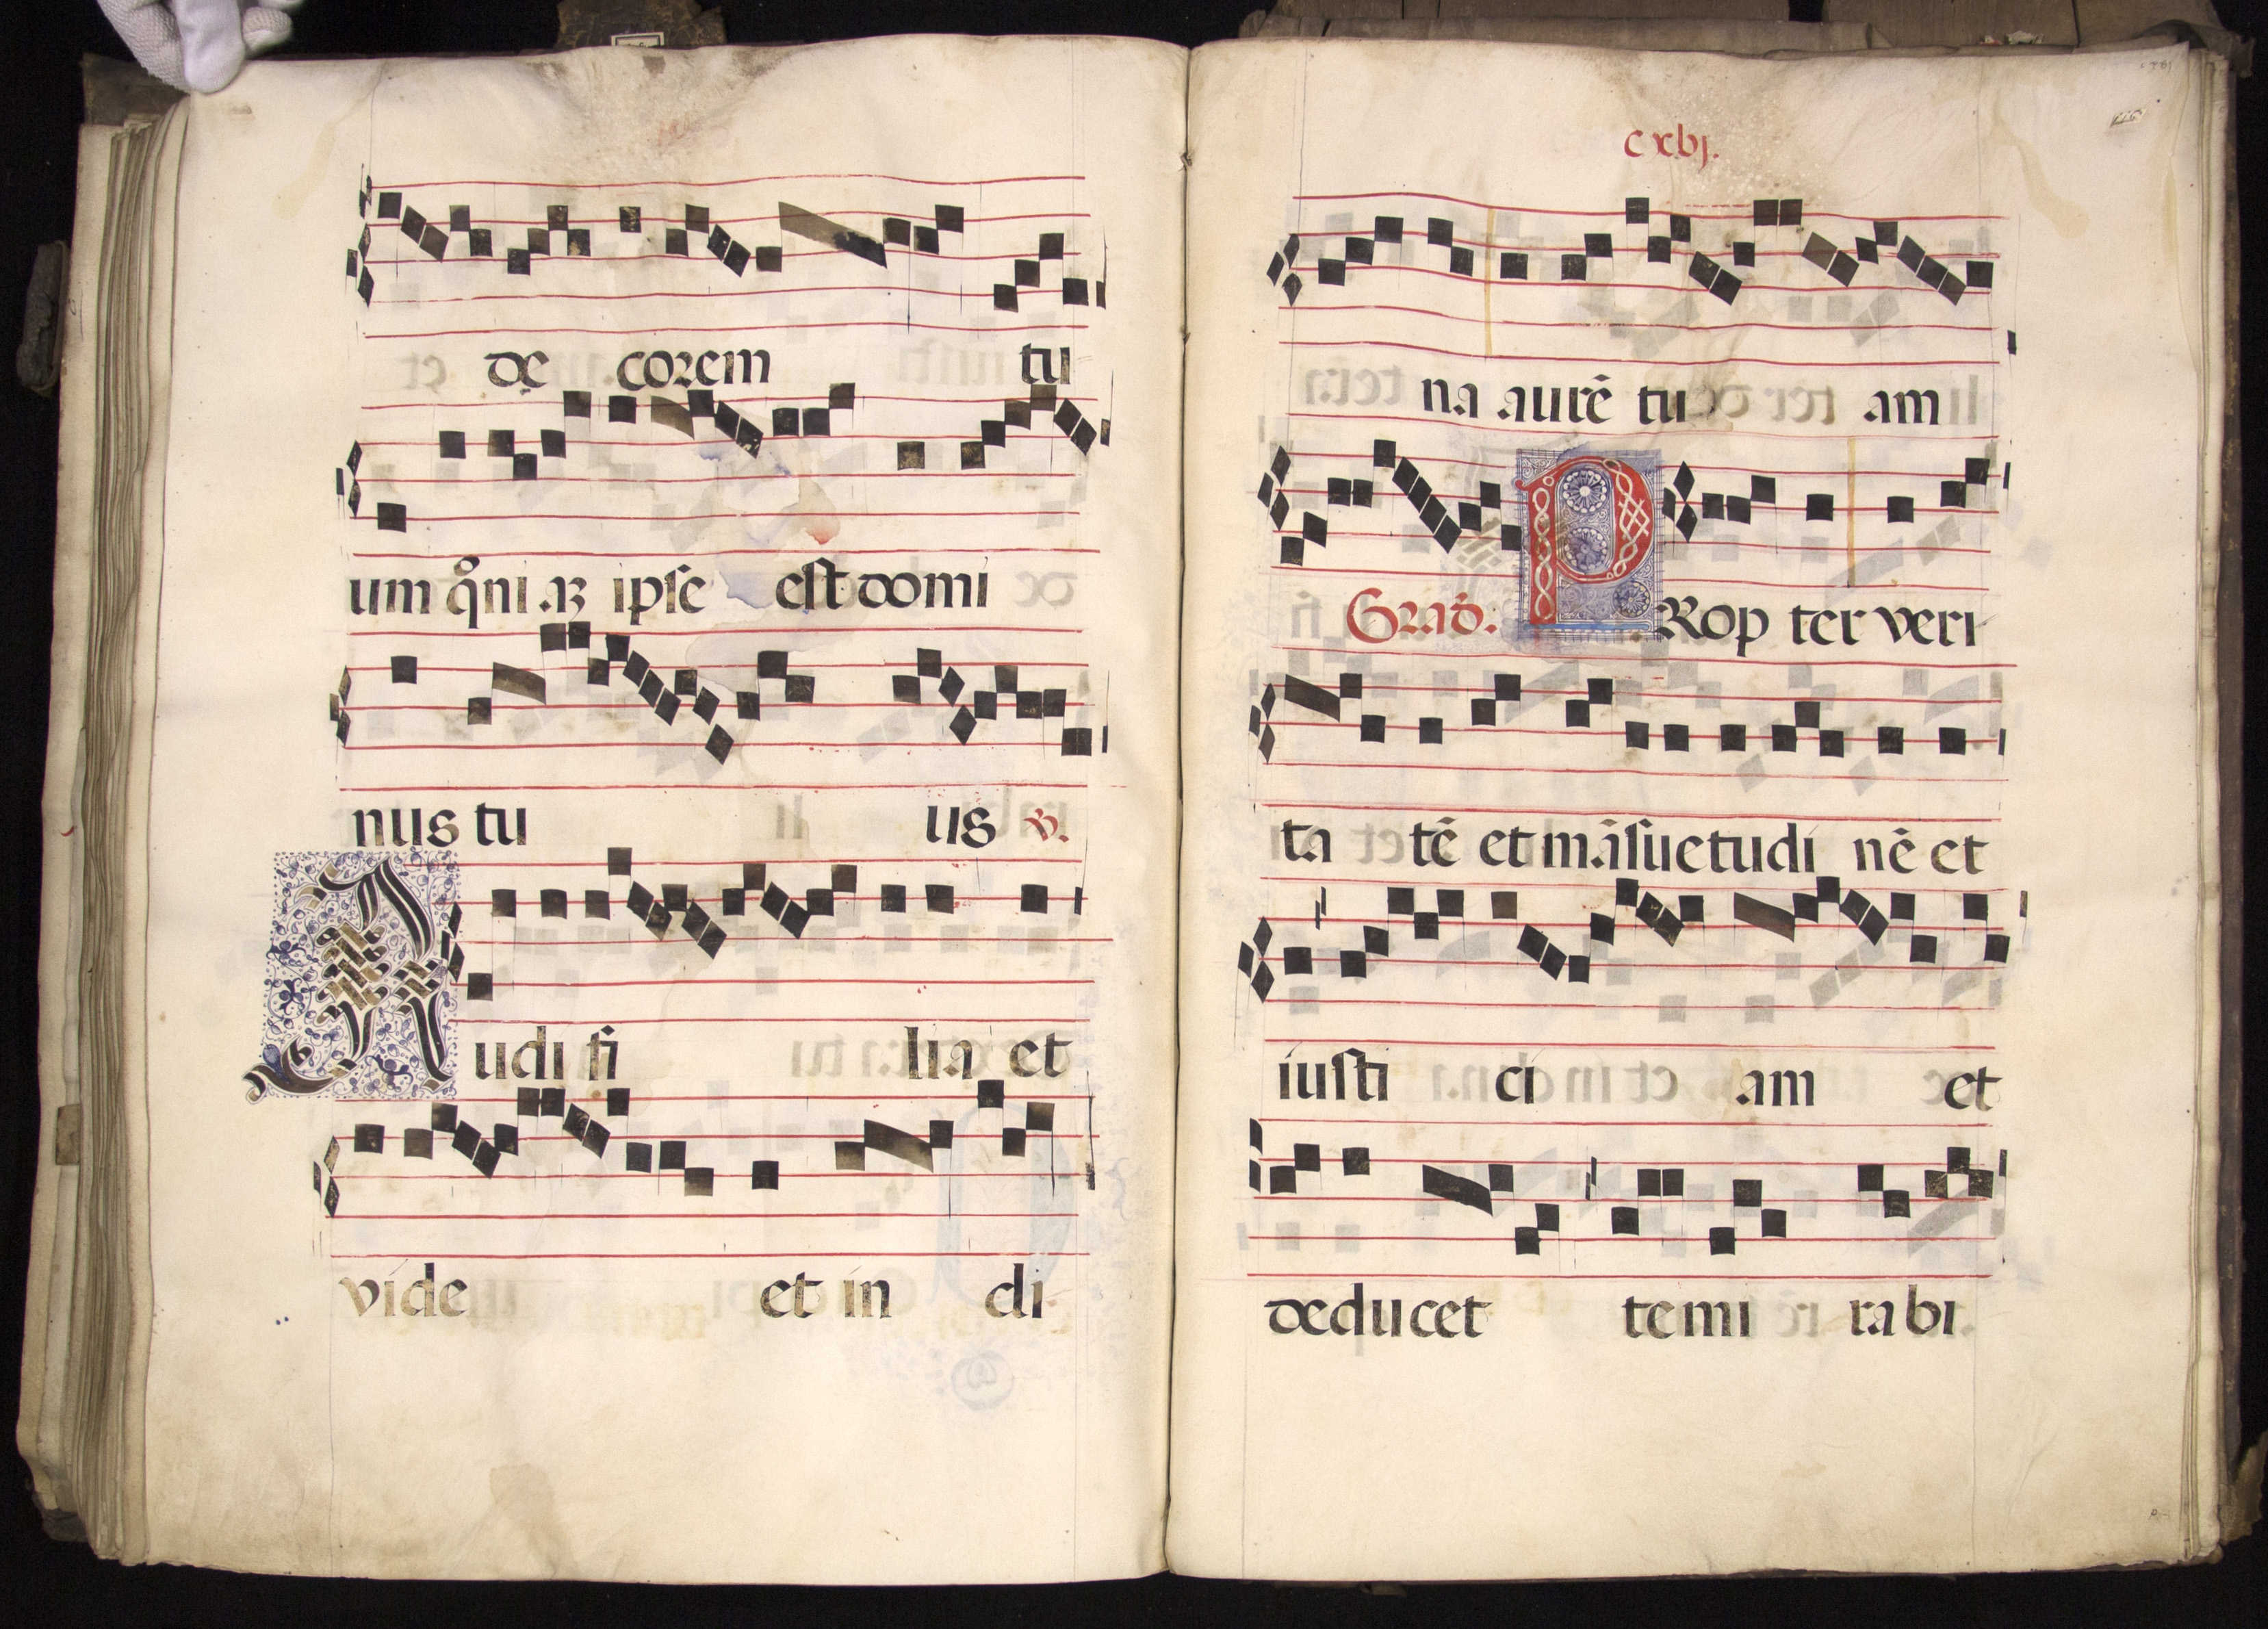 de corem tu
um qͦniaꝫ ipse est domi
nus tu us ℣.
Audi fi lia et
vide et in cli
cxbj.
na aurē tu am
Grad̄. PRop ter veri
ta tē et māsuetudi nē et
iusti ci am et
deducet te mi rabi